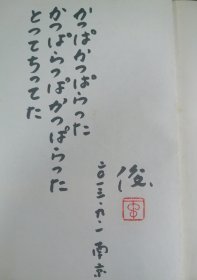 かっぱかっぱらった
かっぱらっぱかっぱらった
とってちってた
俊
二〇一三・九・一 南京